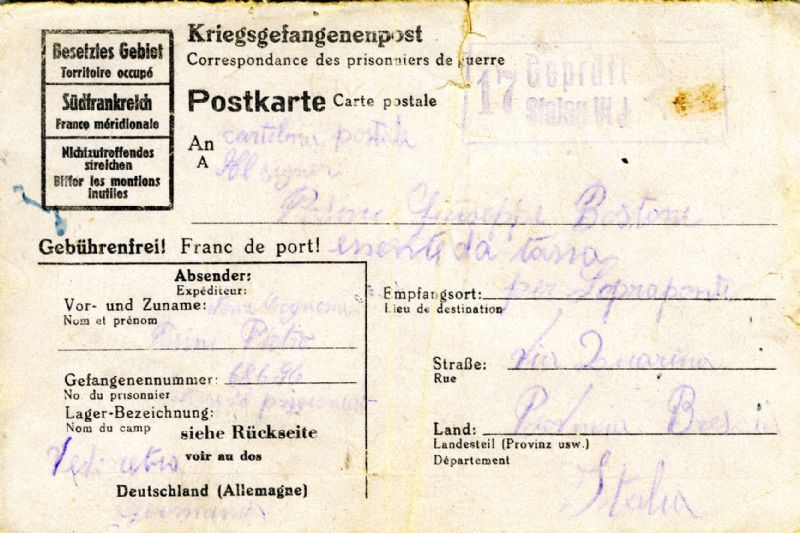 Besetztes Gebiet
Territoire occupé
Südfrankreich
France méridionale
Nichtzutreffendes
streichen
Biffer les mentions
inutiles
Kriegsgefangenenpost
Correspondance des prisonniers de guerre
Postkarte Carte postale
17 Geprüft
Stalag
An
A
cartolina postale
Al signor
Giuseppe Bostone
Gebührenfrei! Franc de port! essente da tassa
per Sopraponte
Absender:
Expéditeur:
Vor- und Zuname:
Nom et prénom
Pietro
Gefangenennummer:
No du prisonnier
Lager-Bezeichnung:
Nom du camp
siehe Rückseite
voir au dos
Vedi retro
Deutschland (Allemagne)
Germania
Empfangsort:
Lieu de destination
Straße: Via
Rue
Land: Brescia
Landesteil (Provinz usw.)
Département
Italia